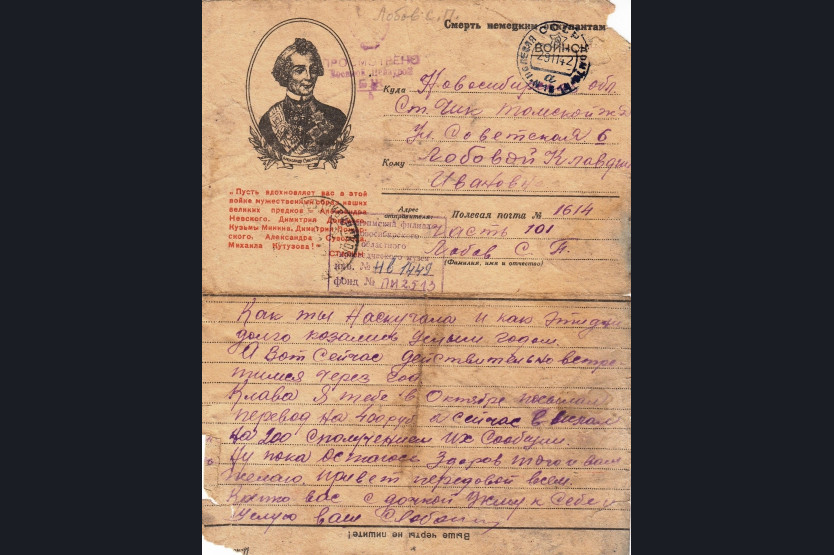 Лобов С. П.
Смерть немецким оккупантам
ПРОСМОТРЕНО
Военной Цензурой
СССР
ПОЛЕВАЯ
ВОИНСК
25 11 42
а
Куда Новосибирск обл
Ст. Чик Томской ж
Ул. Советская 6
Кому Лобовой Клавдии
Ивановне
Александр Суворов
„Пусть вдохновляет вас в этой
войне мужественный образ наших
великих предков Александра
Невского, Димитрия Донского,
Кузьмы Минина, Димитрия Пожар-
ского, Александра Суворова,
Михаила Кутузова!"
СТАЛИН
Адрес
отправителя:
Полевая почта № 1614
Часть 101
Лобов С П.
(Фамилия, имя и отчество)
филиал
Новосибирского
областного
краеведческого музея
инв. № НВ 1449
фонд № 2513
Как ты Наскучала и как эти дни
долго козались целым годом.
А Вот сейчас действительно встре
тимся через Год.
Клава Я тебе в Октябре посылал
перевод на 400 руб и Сейчас
На 200 Сполучением Их Сообщи.
Ну пока Остаюсь Здоров того и вам
желаю. Привет передовой всем.
вас с дочкой Жму к Себе и
Целую ваш С Лобов
Выше черты не пишите!